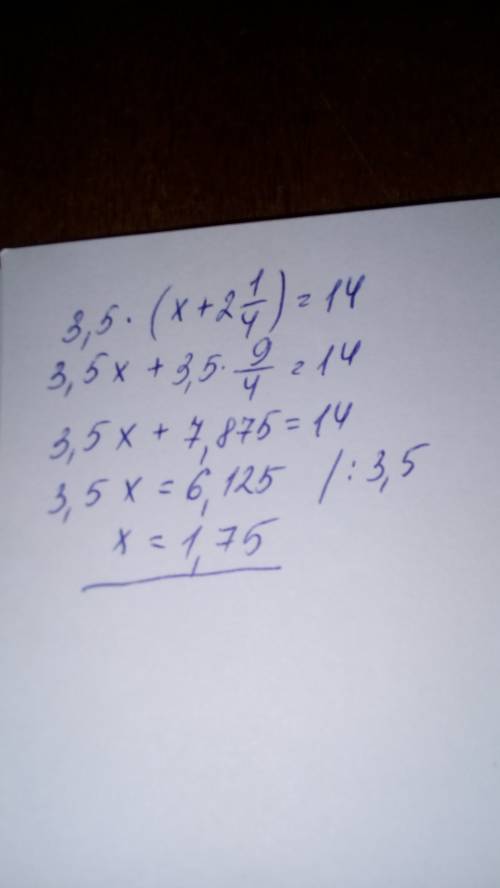 3,5 · (x + 2 1/4) = 14
3,5x + 3,5 · 9/4 = 14
3,5x + 7,875 = 14
3,5x = 6,125 /: 3,5
x = 1,75